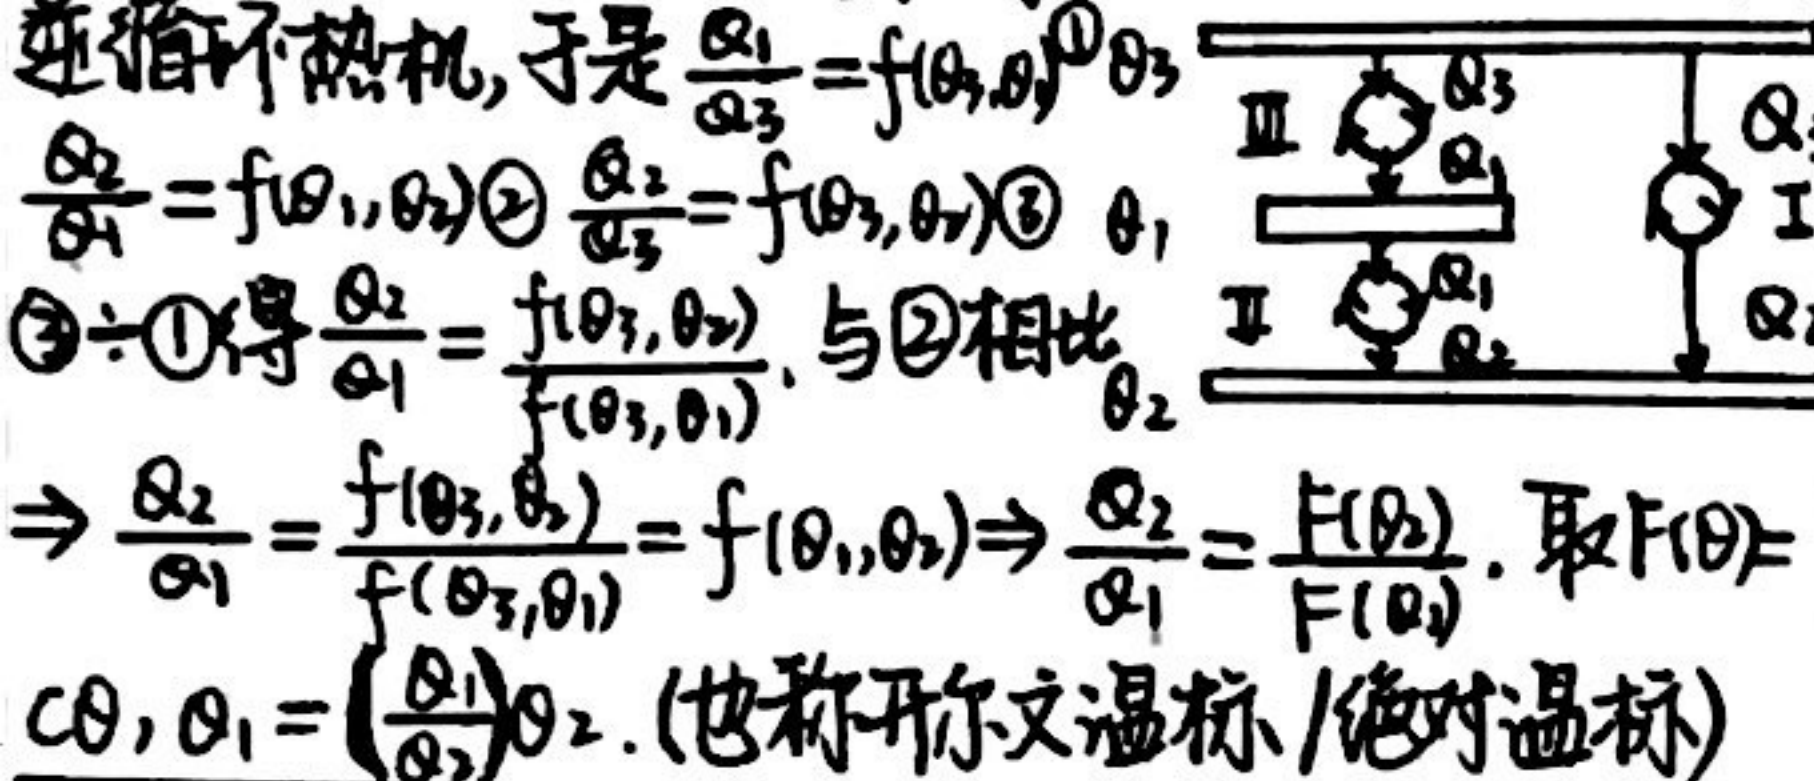 逆循环热机,于是 Q₁/Q₃=f(θ₃,θ₁)①
Q₂/Q₁=f(θ₁,θ₂)② Q₂/Q₃=f(θ₃,θ₂)③
③÷①得 Q₂/Q₁=f(θ₃,θ₂)/f(θ₃,θ₁). 与②相比
⇒ Q₂/Q₁=f(θ₃,θ₂)/f(θ₃,θ₁)=f(θ₁,θ₂)⇒Q₂/Q₁=F(θ₂)/F(θ₁). 取F(θ)=
cθ, θ₁=(Q₁/Q₂)θ₂.(也称开尔文温标/绝对温标)
θ₃
Ⅲ Q₃
Q₁
θ₁
Ⅱ Q₁
Q₂
θ₂
Q
I
Q